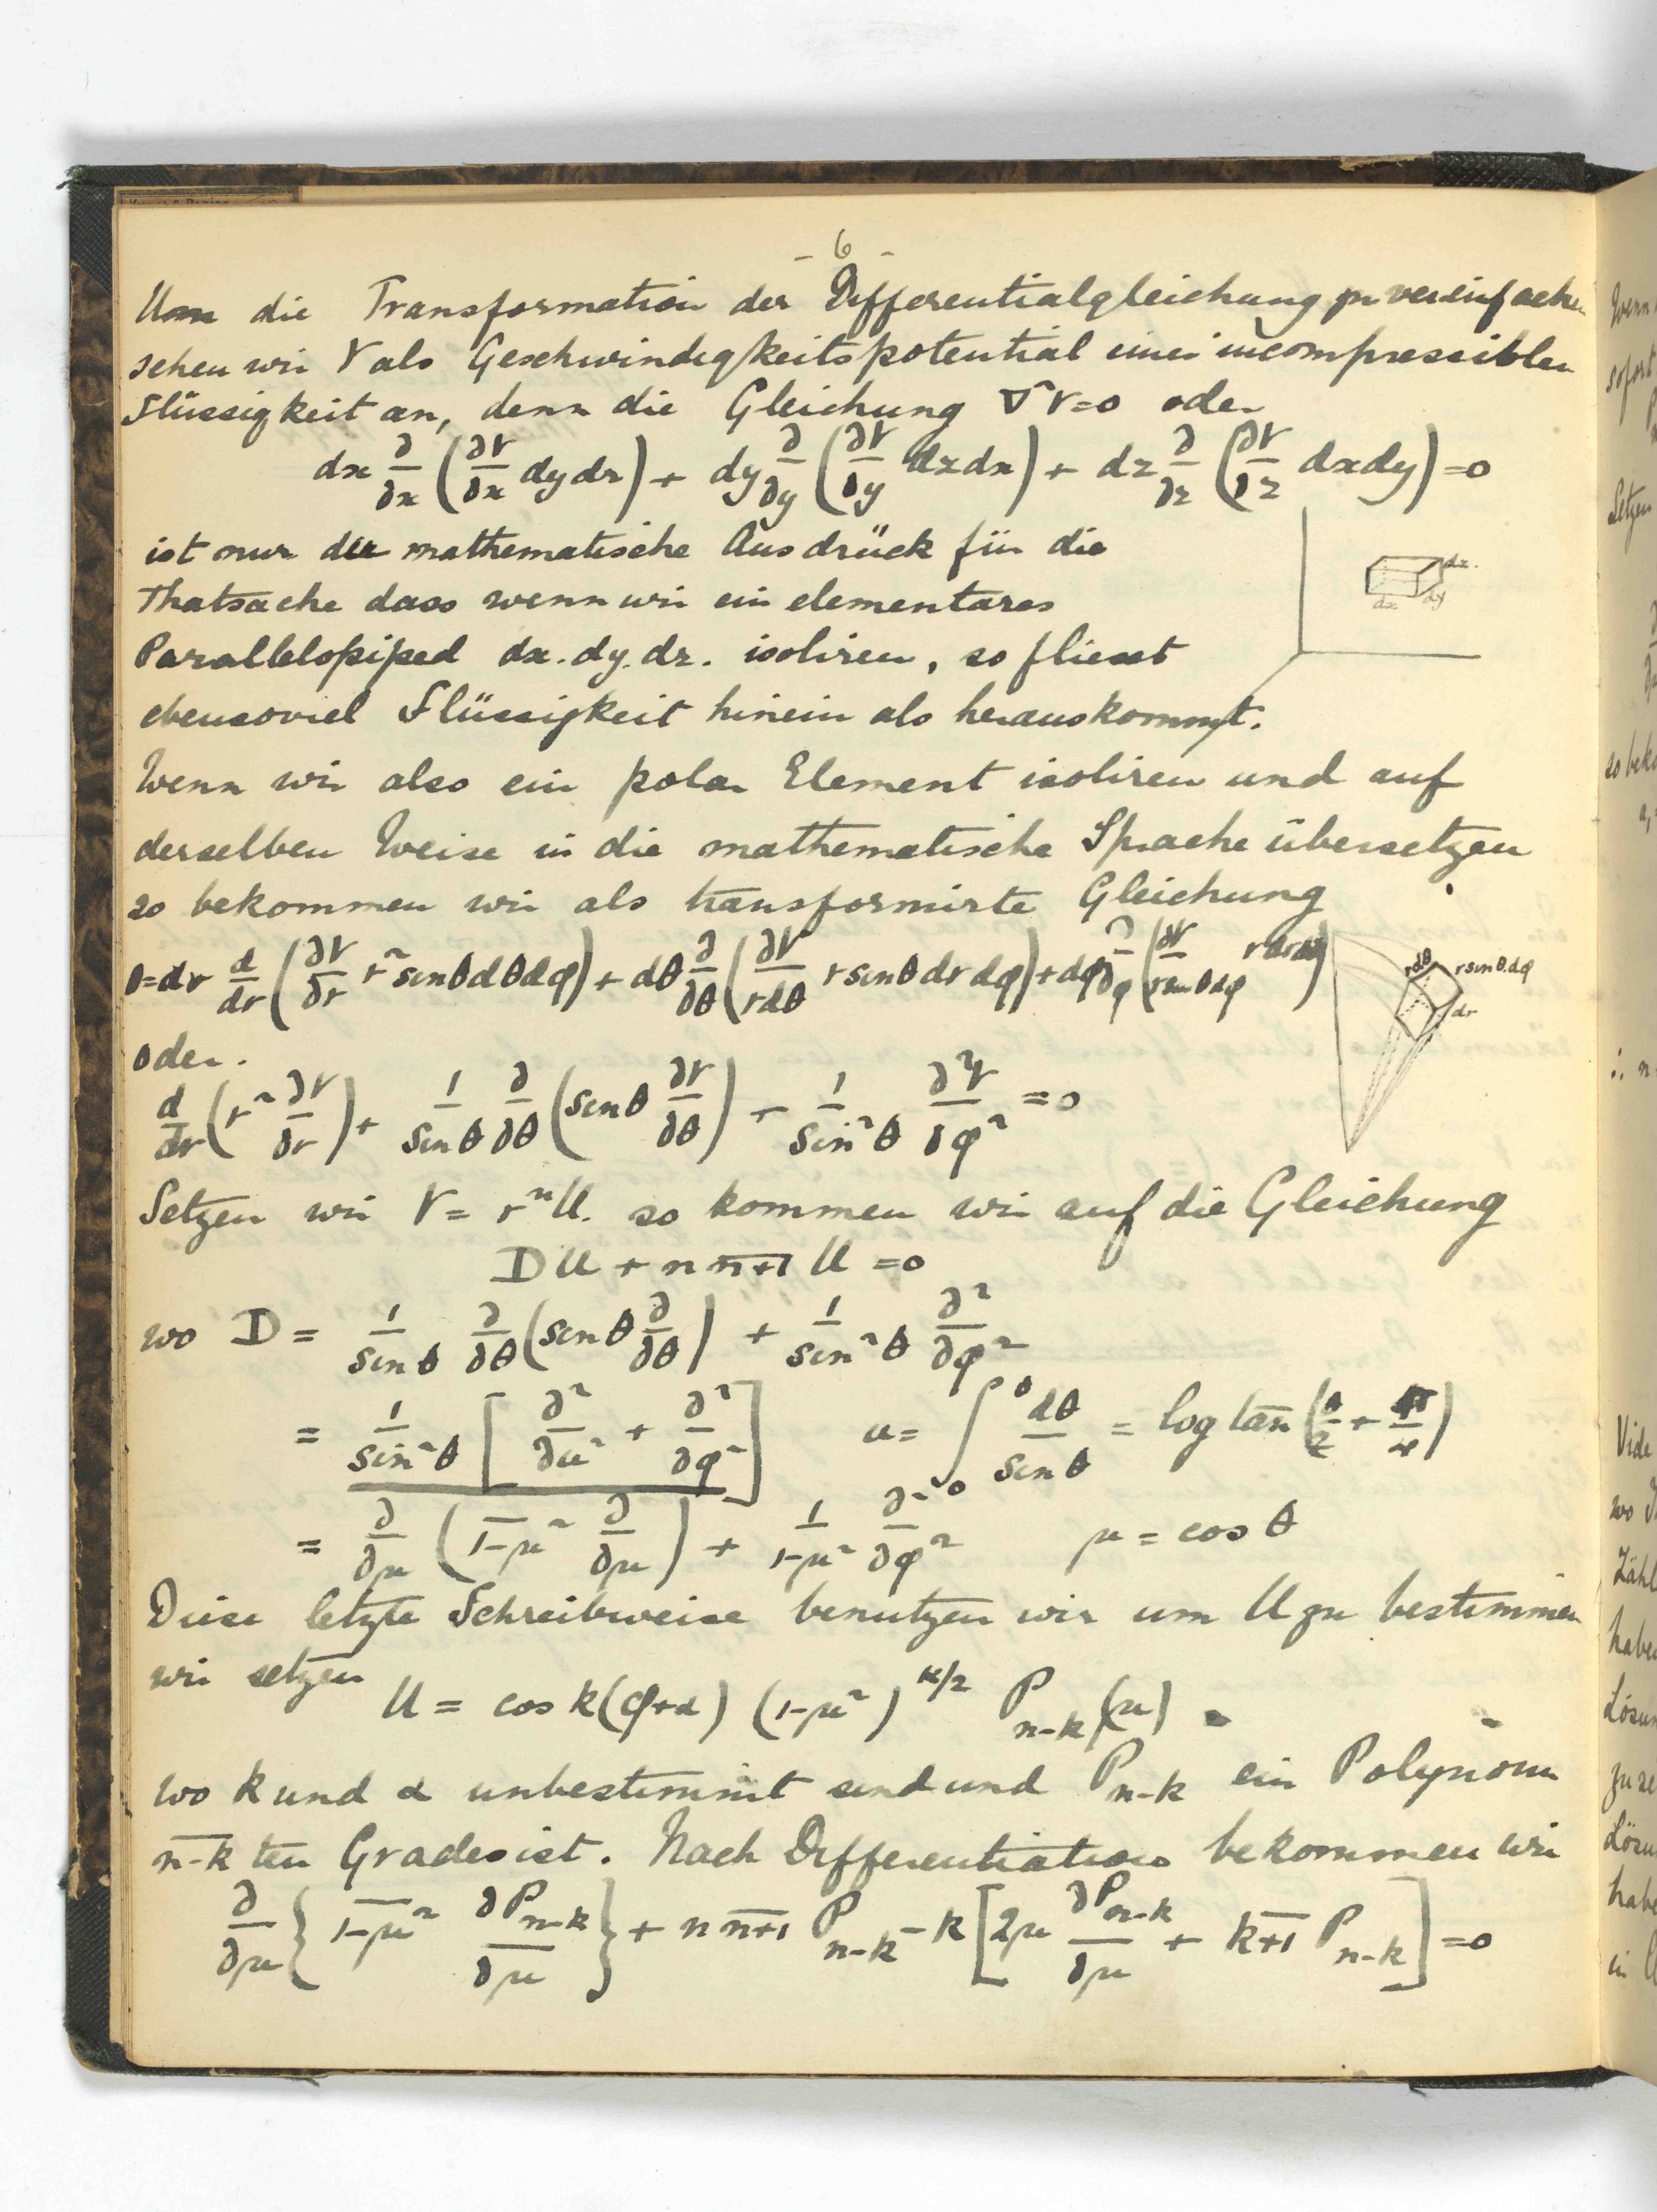 - 6 -
Um die Transformation der Differentialgleichung zu vereinfachen
sehen wir V als Geschwindigkeitspotential einer incompressiblen
Flüssigkeit an, denn die Gleichung ∇²V=0 oder
dx ∂/∂x (∂V/∂x dy dz) + dy ∂/∂y (∂V/∂y dz dx) + dz ∂/∂z (∂V/∂z dx dy) = 0
ist nur der mathematische Ausdrück für die
Thatsache dass wenn wir ein elementares
Parallelopiped dx. dy. dz. isoliren, so fliesst
ebensoviel Flüssigkeit hinein als herauskommt.
dz.
dx dy
Wenn wir also ein polar Element isoliren und auf
derselben Weise in die mathematische Sprache übersetzen
so bekommen wir als transformirte Gleichung
0 = dr d/dr (∂V/∂r r² sinθ dθ dφ) + dθ ∂/∂θ (∂V/rdθ r sinθ dr dφ) + dφ ∂/∂φ (∂V/r sinθ dφ r dr dθ)
rdθ r sinθ.dφ
dr
oder.
d/dr (r² ∂V/∂r) + 1/sinθ ∂/∂θ (sinθ ∂V/∂θ) + 1/sin²θ ∂²V/∂φ² = 0
Setzen wir V = rⁿU. so kommen wir auf die Gleichung
DU + n n̅+̅1̅ U = 0
wo D = 1/sinθ ∂/∂θ (sinθ ∂/∂θ) + 1/sin²θ ∂²/∂φ²
= 1/sin²θ [∂²/∂u² + ∂²/∂φ²] u = ∫₀^θ dθ/sinθ = log tan (θ/2 + π/4)
= ∂/∂μ (1̅-̅μ̅² ∂/∂μ) + 1/1-μ² ∂²/∂φ² μ = cos θ
Diese letzte Schreibweise benutzen wir um U zu bestimmen
wir setzen
U = cos k(φ+α) (1-μ²)^k/2 P_n-k(μ)
wo k und α unbestimmt sind und P_n-k ein Polynom
n̅-̅k̅ ten Grades ist. Nach Differentiation bekommen wir
∂/∂μ {1̅-̅μ̅² ∂P_n-k/∂μ} + n n̅+̅1̅ P_n-k - k [2μ ∂P_n-k/∂μ + k̅+̅1̅ P_n-k] = 0